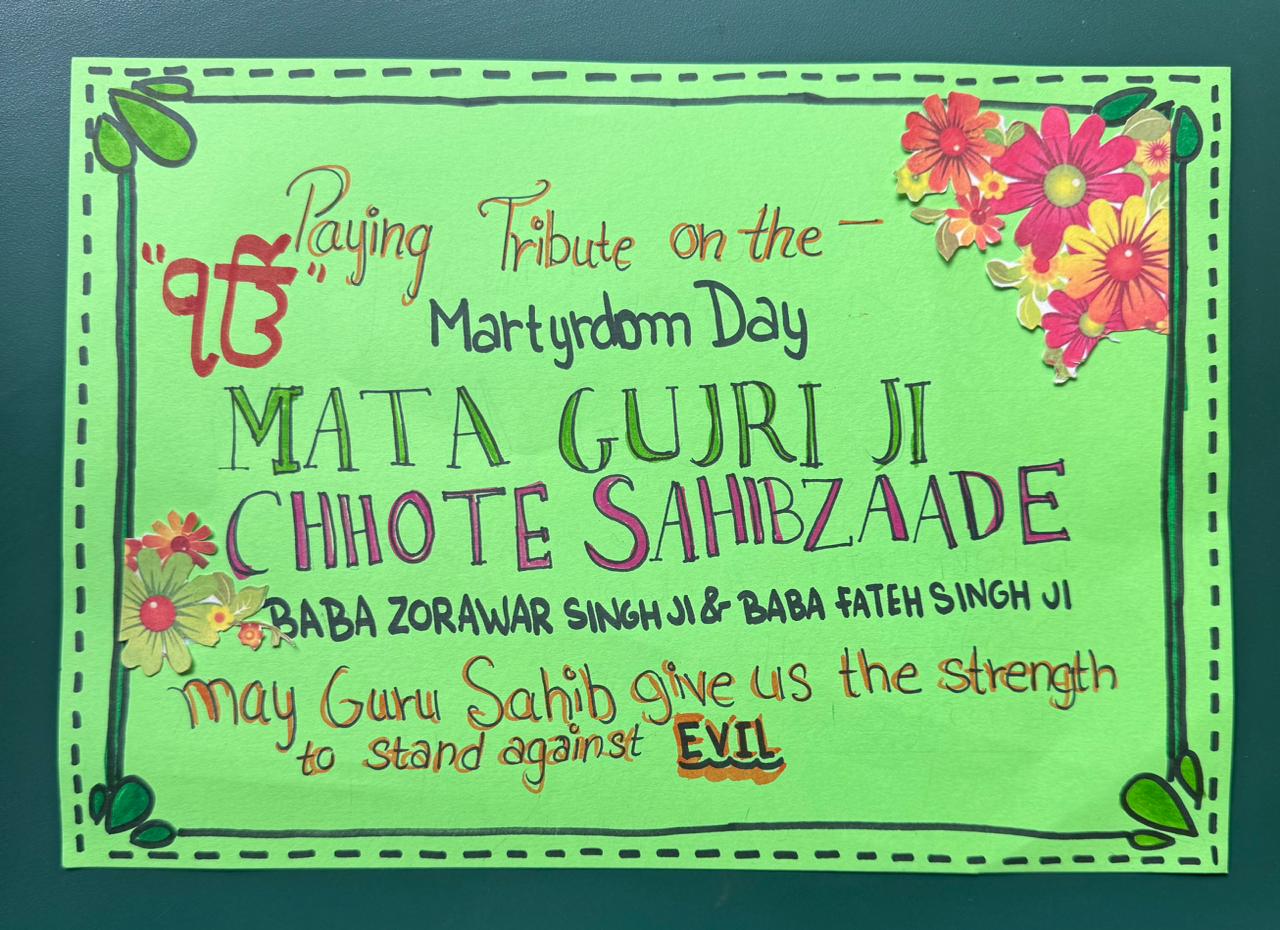 Paying Tribute on the —
"ੴ"
Martyrdom Day
MATA GUJRI JI
CHHOTE SAHIBZAADE
BABA ZORAWAR SINGH JI & BABA FATEH SINGH JI
May Guru Sahib give us the strength
to stand against EVIL